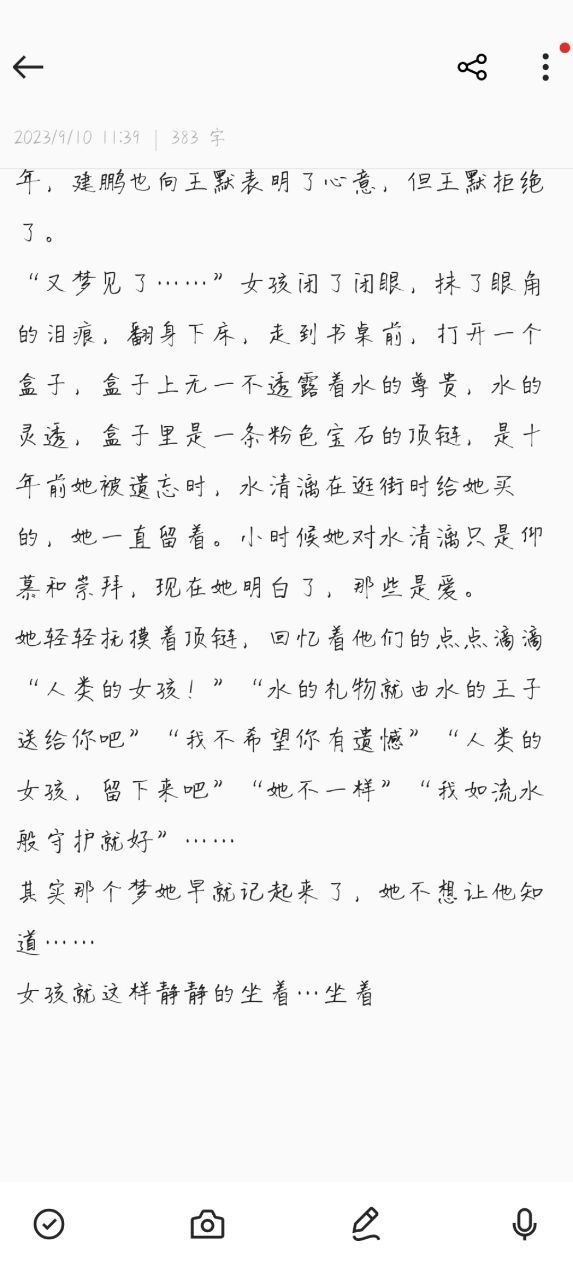 2023/9/10 11:39 | 383 字
年，建鹏也向王默表明了心意，但王默拒绝
了。
“又梦见了……”女孩闭了闭眼，抹了眼角
的泪痕，翻身下床，走到书桌前，打开一个
盒子，盒子上无一不透露着水的尊贵，水的
灵透，盒子里是一条粉色宝石的项链，是十
年前她被遗忘时，水清漓在逛街时给她买
的，她一直留着。小时候她对水清漓只是仰
慕和崇拜，现在她明白了，那些是爱。
她轻轻抚摸着项链，回忆着他们的点点滴滴
“人类的女孩！”“水的礼物就由水的王子
送给你吧”“我不希望你有遗憾”“人类的
女孩，留下来吧”“她不一样”“我如流水
般守护就好”……
其实那个梦她早就记起来了，她不想让他知
道……
女孩就这样静静的坐着…坐着